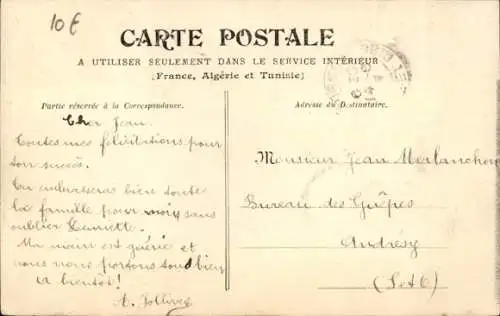 10 €
CARTE POSTALE
A UTILISER SEULEMENT DANS LE SERVICE INTÉRIEUR
(France, Algérie et Tunisie)
Partie réservée à la Correspondance.
Adresse du Destinataire.
Cher Jean.
Toutes mes félicitations pour
ton succès.
Tu embrasseras bien toute
la famille pour moi sans
oublier
Ma main est guérie et
nous nous portons tous bien
A bientôt!
A. Jollivet
Monsieur Jean Merlanchon
Bureau des Guêpes
Andrésy
(S et O)